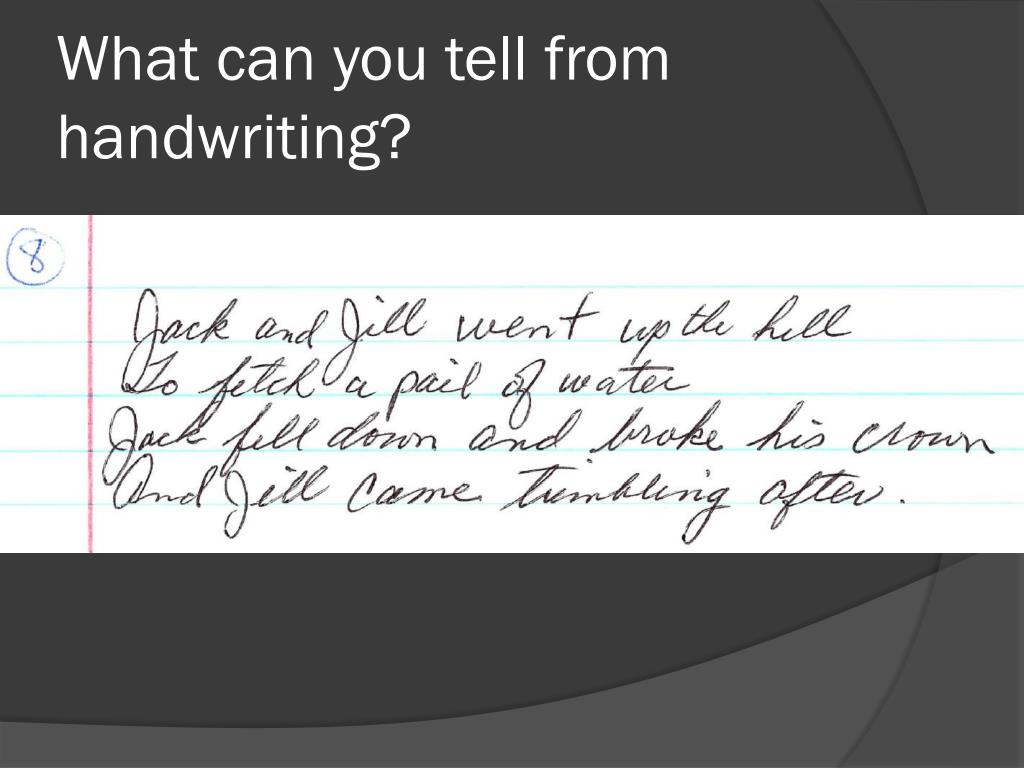 What can you tell from
handwriting?
8
Jack and Jill went up the hill
To fetch a pail of water
Jack fell down and broke his crown
And Jill came tumbling after.